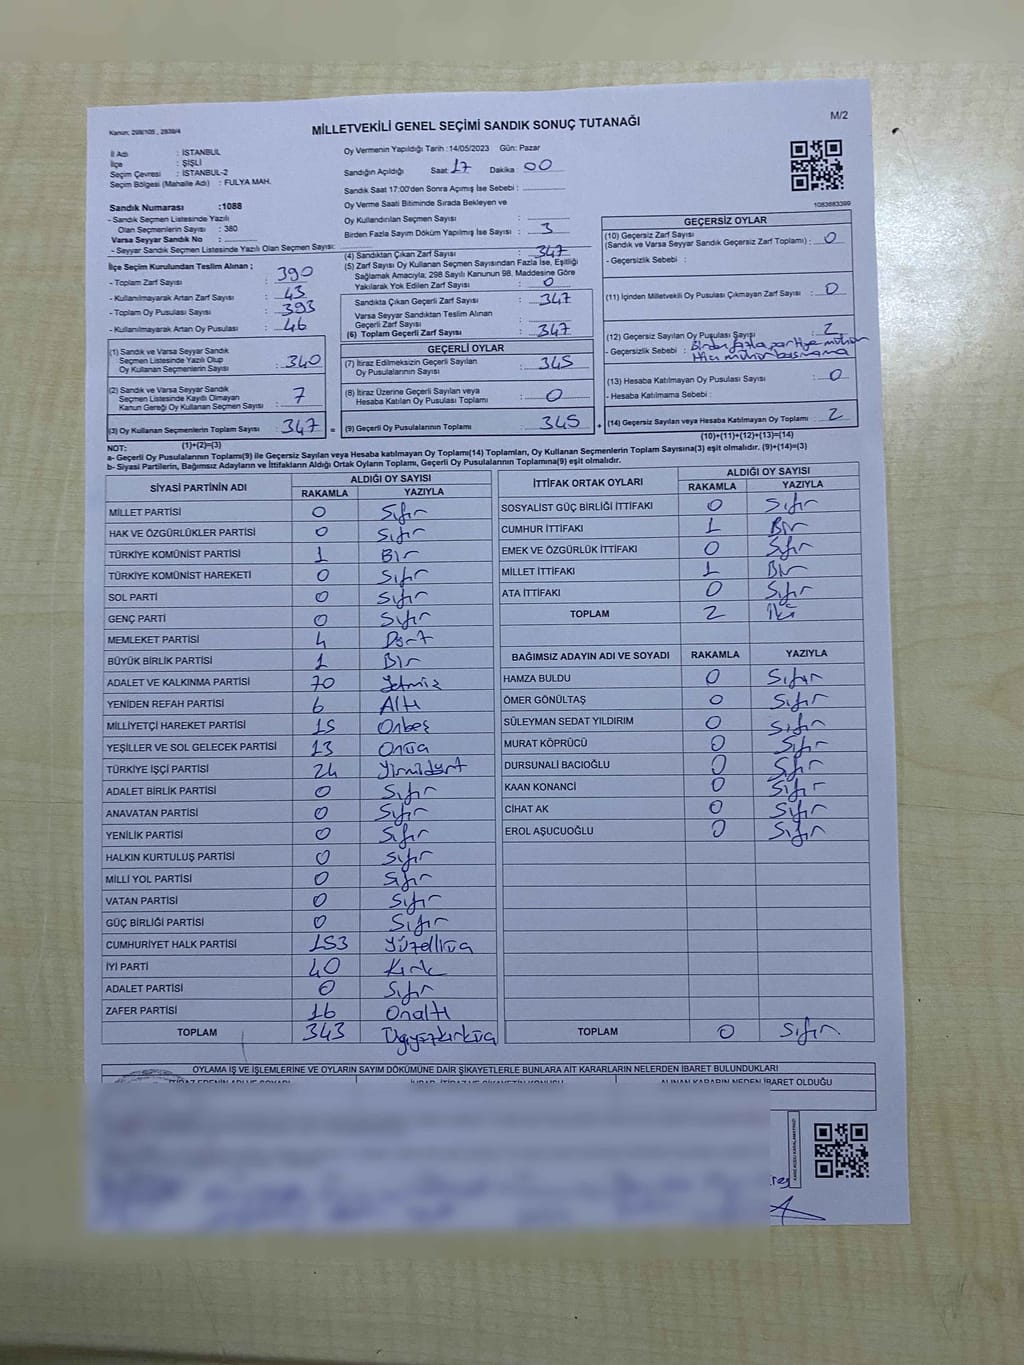 Kanun: 298/105 , 2839/4
MİLLETVEKİLİ GENEL SEÇİMİ SANDIK SONUÇ TUTANAĞI
M/2
İl Adı : İSTANBUL
İlçe : ŞİŞLİ
Seçim Çevresi : İSTANBUL-2
Seçim Bölgesi (Mahalle Adı) : FULYA MAH.
Sandık Numarası :1088
- Sandık Seçmen Listesinde Yazılı
Olan Seçmenlerin Sayısı : 380
Varsa Seyyar Sandık No :
- Seyyar Sandık Seçmen Listesinde Yazılı Olan Seçmen Sayısı:
Oy Vermenin Yapıldığı Tarih :14/05/2023 Gün: Pazar
Sandığın Açıldığı Saat: 17 Dakika 00
Sandık Saat 17:00'den Sonra Açılmış İse Sebebi :
Oy Verme Saati Bitiminde Sırada Bekleyen ve
Oy Kullandırılan Seçmen Sayısı :
Birden Fazla Sayım Döküm Yapılmış İse Sayısı : 3
1083683399
İlçe Seçim Kurulundan Teslim Alınan ;
- Toplam Zarf Sayısı : 390
- Kullanılmayarak Artan Zarf Sayısı : 43
- Toplam Oy Pusulası Sayısı : 393
- Kullanılmayarak Artan Oy Pusulası : 46
(1) Sandık ve Varsa Seyyar Sandık
Seçmen Listesinde Yazılı Olup
Oy Kullanan Seçmenlerin Sayısı : 340
(2) Sandık ve Varsa Seyyar Sandık
Seçmen Listesinde Kayıtlı Olmayan
Kanun Gereği Oy Kullanan Seçmen Sayısı : 7
(3) Oy Kullanan Seçmenlerin Toplam Sayısı : 347
(1)+(2)=(3)
(4) Sandıktan Çıkan Zarf Sayısı : 347
(5) Zarf Sayısı Oy Kullanan Seçmen Sayısından Fazla İse, Eşitliği
Sağlamak Amacıyla; 298 Sayılı Kanunun 98. Maddesine Göre
Yakılarak Yok Edilen Zarf Sayısı : 0
Sandıkta Çıkan Geçerli Zarf Sayısı : 347
Varsa Seyyar Sandıktan Teslim Alınan
Geçerli Zarf Sayısı :
(6) Toplam Geçerli Zarf Sayısı : 347
GEÇERLİ OYLAR
(7) İtiraz Edilmeksizin Geçerli Sayılan
Oy Pusulalarının Sayısı : 345
(8) İtiraz Üzerine Geçerli Sayılan veya
Hesaba Katılan Oy Pusulası Toplamı : 0
= (9) Geçerli Oy Pusulalarının Toplamı : 345 +
GEÇERSİZ OYLAR
(10) Geçersiz Zarf Sayısı
(Sandık ve Varsa Seyyar Sandık Geçersiz Zarf Toplamı) : 0
- Geçersizlik Sebebi :
(11) İçinden Milletvekili Oy Pusulası Çıkmayan Zarf Sayısı : 0
(12) Geçersiz Sayılan Oy Pusulası Sayısı : 2
- Geçersizlik Sebebi : Birden fazla partiye mühür
Hiç mühür basmama
(13) Hesaba Katılmayan Oy Pusulası Sayısı : 0
- Hesaba Katılmama Sebebi :
(14) Geçersiz Sayılan veya Hesaba Katılmayan Oy Toplamı : 2
(10)+(11)+(12)+(13)=(14)
NOT:
a- Geçerli Oy Pusulalarının Toplamı(9) ile Geçersiz Sayılan veya Hesaba Katılmayan Oy Toplamı(14) Toplamları, Oy Kullanan Seçmenlerin Toplam Sayısına(3) eşit olmalıdır. (9)+(14)=(3)
b- Siyasi Partilerin, Bağımsız Adayların ve İttifakların Aldığı Ortak Oyların Toplamı, Geçerli Oy Pusulalarının Toplamına(9) eşit olmalıdır.
SİYASİ PARTİNİN ADI ALDIĞI OY SAYISI
RAKAMLA YAZIYLA
MİLLET PARTİSİ 0 Sıfır
HAK VE ÖZGÜRLÜKLER PARTİSİ 0 Sıfır
TÜRKİYE KOMÜNİST PARTİSİ 1 Bir
TÜRKİYE KOMÜNİST HAREKETİ 0 Sıfır
SOL PARTİ 0 Sıfır
GENÇ PARTİ 0 Sıfır
MEMLEKET PARTİSİ 4 Dört
BÜYÜK BİRLİK PARTİSİ 1 Bir
ADALET VE KALKINMA PARTİSİ 70 Yetmiş
YENİDEN REFAH PARTİSİ 6 Altı
MİLLİYETÇİ HAREKET PARTİSİ 15 Onbeş
YEŞİLLER VE SOL GELECEK PARTİSİ 13 Onüç
TÜRKİYE İŞÇİ PARTİSİ 24 Yirmidört
ADALET BİRLİK PARTİSİ 0 Sıfır
ANAVATAN PARTİSİ 0 Sıfır
YENİLİK PARTİSİ 0 Sıfır
HALKIN KURTULUŞ PARTİSİ 0 Sıfır
MİLLİ YOL PARTİSİ 0 Sıfır
VATAN PARTİSİ 0 Sıfır
GÜÇ BİRLİĞİ PARTİSİ 0 Sıfır
CUMHURİYET HALK PARTİSİ 153 Yüzelliüç
İYİ PARTİ 40 Kırk
ADALET PARTİSİ 0 Sıfır
ZAFER PARTİSİ 16 Onaltı
TOPLAM 343 Üçyüzkırküç
İTTİFAK ORTAK OYLARI ALDIĞI OY SAYISI
RAKAMLA YAZIYLA
SOSYALİST GÜÇ BİRLİĞİ İTTİFAKI 0 Sıfır
CUMHUR İTTİFAKI 1 Bir
EMEK VE ÖZGÜRLÜK İTTİFAKI 0 Sıfır
MİLLET İTTİFAKI 1 Bir
ATA İTTİFAKI 0 Sıfır
TOPLAM 2 İki
BAĞIMSIZ ADAYIN ADI VE SOYADI RAKAMLA YAZIYLA
HAMZA BULDU 0 Sıfır
ÖMER GÖNÜLTAŞ 0 Sıfır
SÜLEYMAN SEDAT YILDIRIM 0 Sıfır
MURAT KÖPRÜCÜ 0 Sıfır
DURSUNALİ BACIOĞLU 0 Sıfır
KAAN KONANCİ 0 Sıfır
CİHAT AK 0 Sıfır
EROL AŞUCUOĞLU 0 Sıfır
TOPLAM 0 Sıfır
OYLAMA İŞ VE İŞLEMLERİNE VE OYLARIN SAYIM DÖKÜMÜNE DAİR ŞİKAYETLERLE BUNLARA AİT KARARLARIN NELERDEN İBARET BULUNDUKLARI
ALINAN KARARIN NEDEN İBARET OLDUĞU